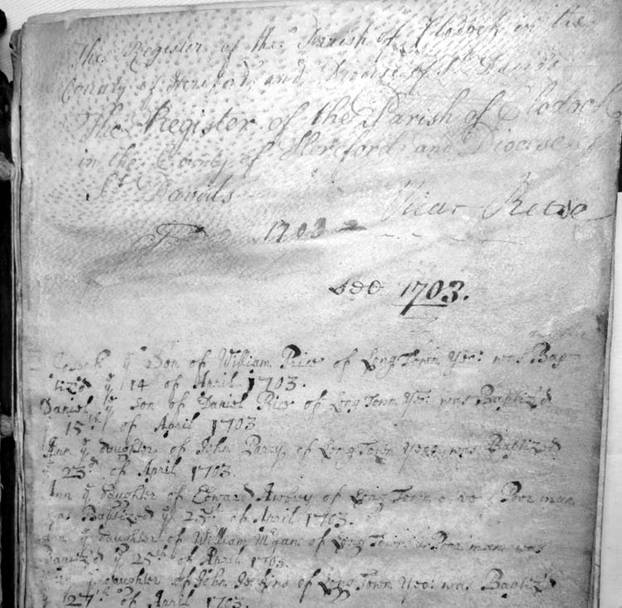 The Register of the Parish of Clodock in the
County of Hereford and Diocese of St Davids
The Register of the Parish of Clodock
in the County of Hereford and Diocese of
St Davids
1703
Vicar
1703.
ye Son of William Price of Long Town Yeo: was Bap
tiz'd ye 14 of April 1703.
Daniel ye Son of Daniel Price of Long Town Yeo: was Baptiz'd
15th of April 1703
Ann ye Daughter of John Parry of Long Town Yeo: was Baptiz'd
23th of April 1703
Ann ye Daughter of Edward of Long Town a Poor man
was Baptized ye 25th of April 1703.
ye Daughter of William of Long Town a Poor man was
Baptiz'd ye 25th of April 1703.
Daughter of John of Long Town Yeo: was Baptiz'd
27th of April 1703.